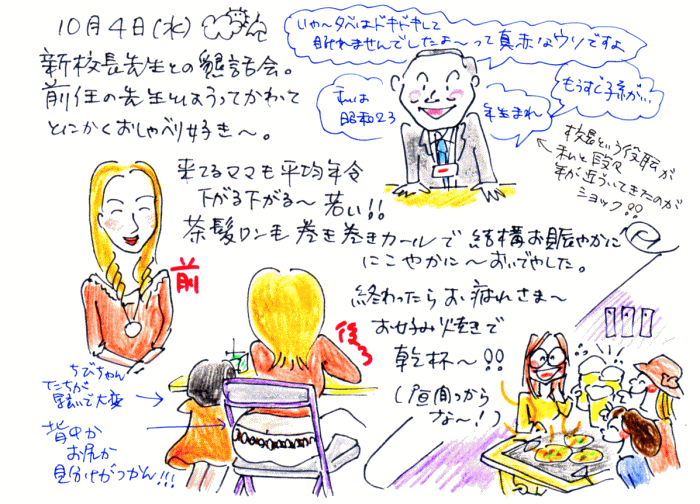 10月4日(水)
新校長先生との懇話会。
前任の先生とはうってかわって
とにかくおしゃべり好き〜。
いや〜夕べはドキドキして
眠れませんでしたよ〜って真赤なウソですよ
私は
昭和23
年生まれ
もうすぐ子系が…
校長という役職が
私と段々
年が近づいてきたのが
ショック!!
来てるママも平均年令
下がる下がる〜若い!!
茶髪ロン毛巻き巻きカールで結構お賑やかに
にこやかに〜おいでやした。
前
後ろ
終わったらお疲れさま〜
お好み焼きで
乾杯〜!!
(昼間っから
な〜!)
ちびちゃん
たちが
騒いで大変
背中か
お尻か
見分けがつかん!!!